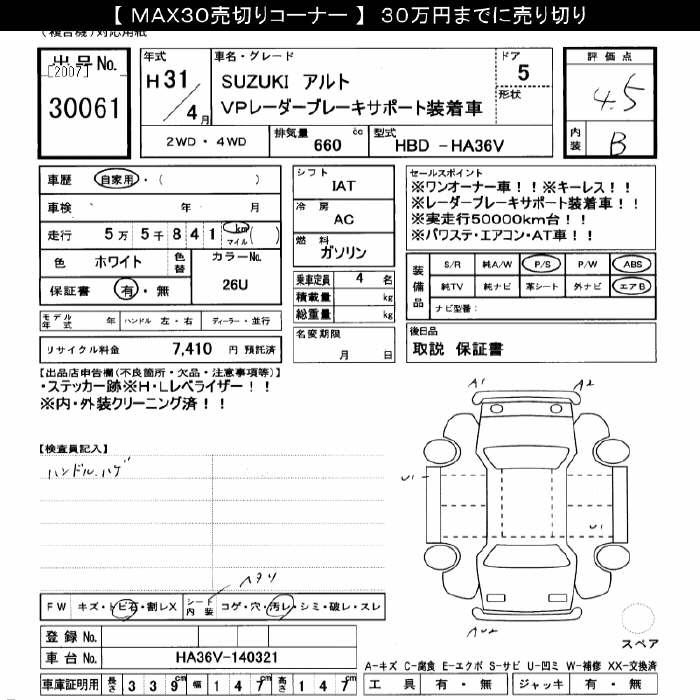 【 MAX30売切りコーナー 】 30万円までに売り切り
(複合機)対応用紙
出品No.
[2007]
30061
年式
H 31
4月
車名・グレード
SUZUKI アルト
VPレーダーブレーキサポート装着車
ドア
5
形状
評価点
4.5
内装
B
2WD・4WD
排気量 660 cc
型式 HBD -HA36V
車歴 自家用・( )
車検 年 月
走行 5万 5千 8 4 1 km マイル ( )
色 ホワイト 色替
カラーNo. 26U
保証書 有・無
モデル年式 年 ハンドル 左・右 ディーラー・並行
リサイクル料金 7,410 円 預託済
シフト
IAT
冷房
AC
燃料
ガソリン
乗車定員 4 名
積載量 kg
総重量 kg
名変期限
月 日
セールスポイント
※ワンオーナー車!!※キーレス!!
※レーダーブレーキサポート装着車!!
※実走行50000km台!!
※パワステ・エアコン・AT車!!
装備品
S/R 純A/W P/S P/W ABS
純TV 純ナビ 革シート 外ナビ エアB
ナビ型番:
後日品
取説 保証書
【出品店申告欄(不良箇所・欠品・注意事項等)】
・ステッカー跡※H・Lレベライザー!!
※内・外装クリーニング済!!
【検査員記入】
ハンドルハゲ
A1
A2
U1
U1
FW キズ・トビ石・割レX
シート内装 コゲ・穴・汚レ・シミ・破レ・スレ
登録No.
車台No. HA36V-140321
車庫証明用 長さ 339cm 幅 147cm 高さ 147cm
スペア
A-キズ C-腐食 E-エクボ S-サビ U-凹ミ W-補修 XX-交換済
工具 有・無 ジャッキ 有・無